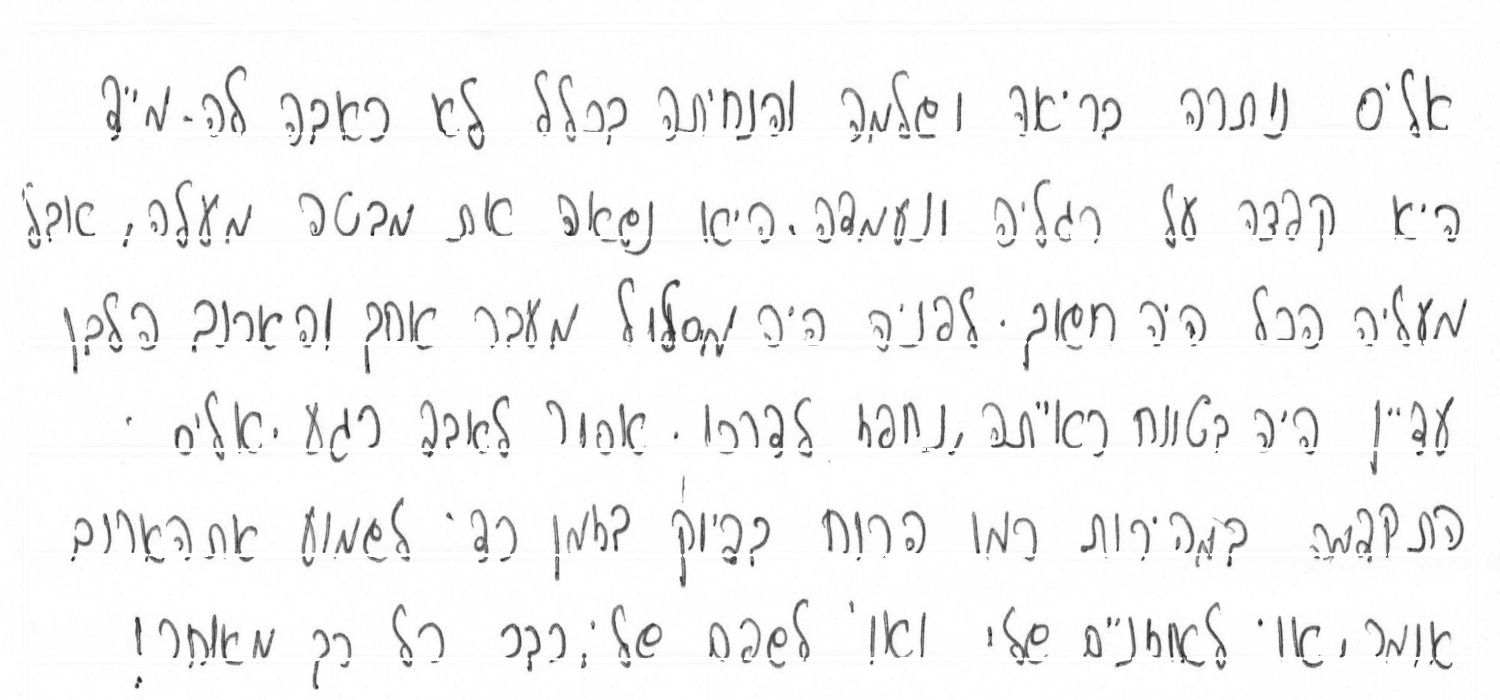 אליס נותרה בריאה ושלמה והנחיתה בכלל לא כאבה לה. מייד
היא קפצה על רגליה ונעמדה. היא נשאה את מבטה מעלה, אבל
מעליה הכל היה חשוך. לפניה היה מסלול מעבר ארוך והארנב הלבן
עדיין היה בטווח ראייתה, נחפז לדרכו. אסור לאבד רגע. אליס
התקדמה במהירות כמו הרוח בדיוק בזמן כדי לשמוע את הארנב
אומר, אוי לאוזניים שלי ואוי לשפם שלי, כבר כל כך מאוחר!